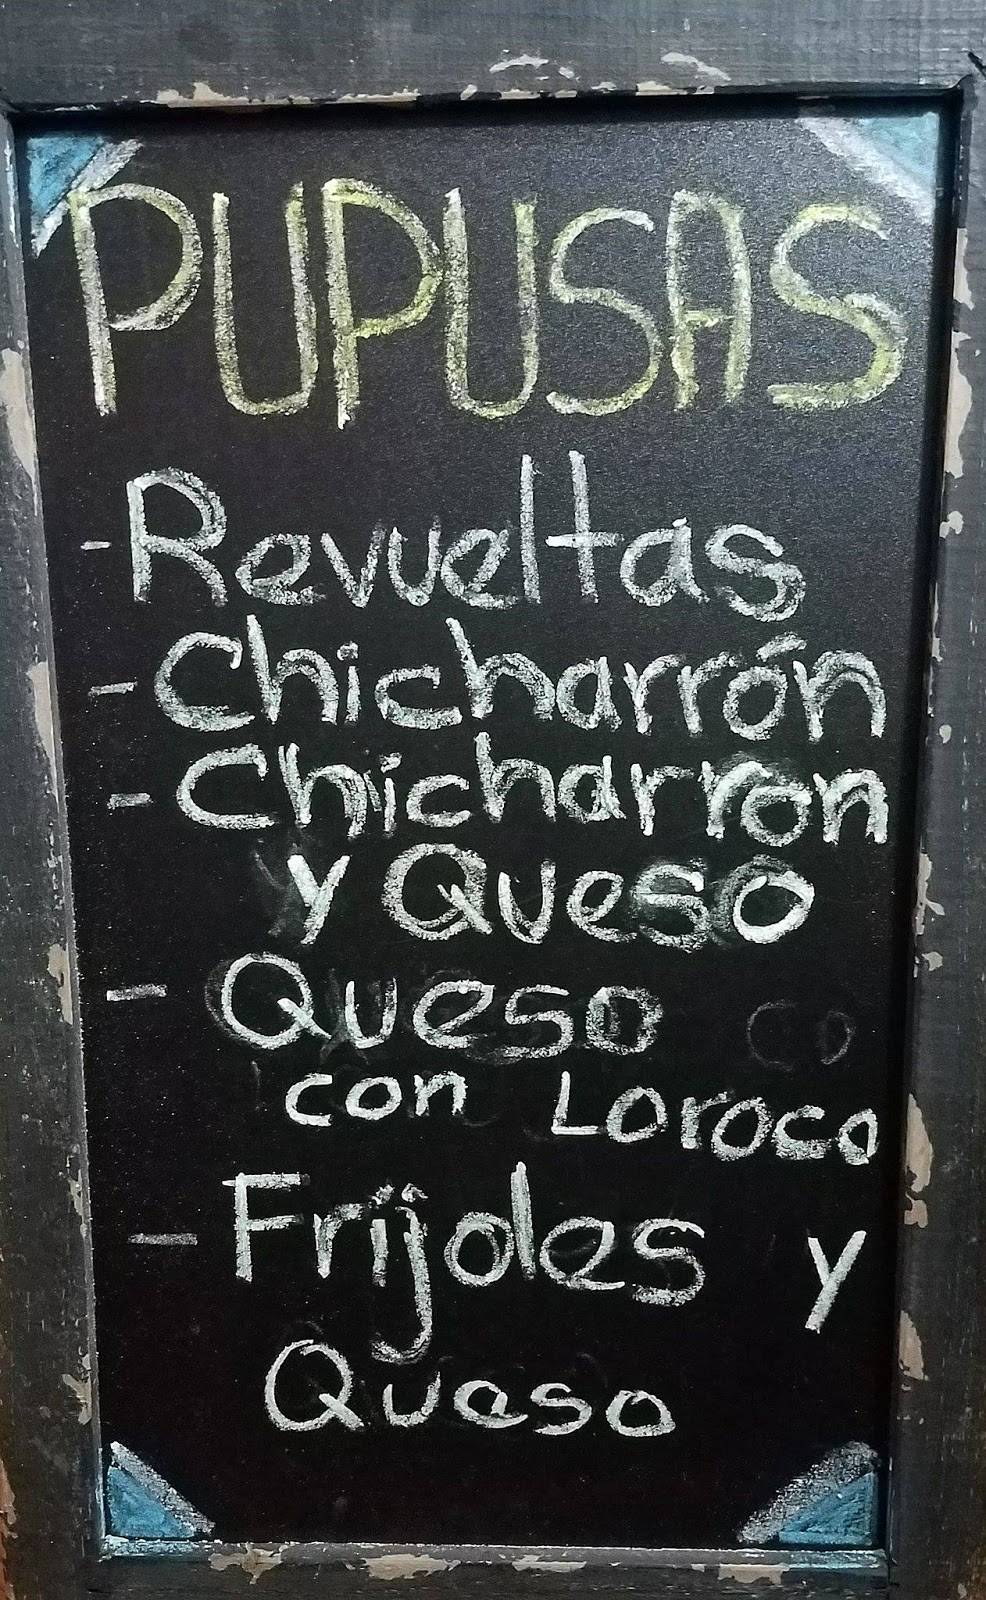 PUPUSAS
-Revueltas
-Chicharrón
-Chicharron
y Queso
- Queso
con Loroco
- Frijoles y
Queso